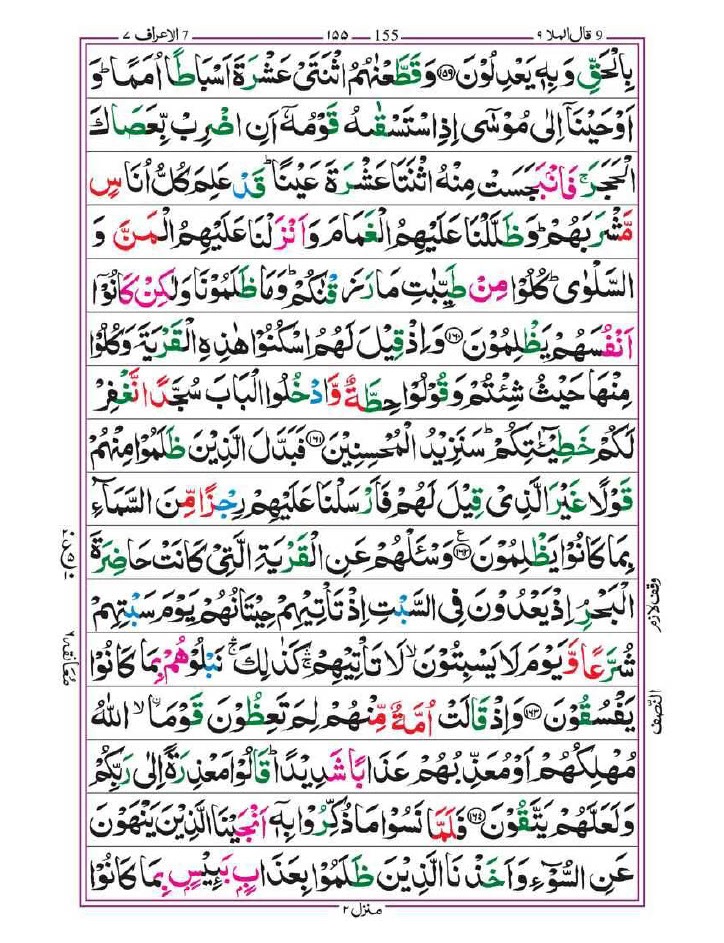 9 قال الملا ٩ — 155 — ١٥٥ — 7 الاعراف ٧
بِالْحَقِّ وَبِهٖ يَعْدِلُوْنَ ﴿۱۵۹﴾ وَقَطَّعْنٰهُمُ اثْنَتَيْ عَشْرَةَ اَسْبَاطًا اُمَمًا ؕ وَ
اَوْحَيْنَاۤ اِلٰى مُوْسٰۤى اِذِ اسْتَسْقٰىهُ قَوْمُهٗۤ اَنِ اضْرِبْ بِّعَصَاكَ
الْحَجَرَ ۚ فَانْۢبَجَسَتْ مِنْهُ اثْنَتَا عَشْرَةَ عَيْنًا ؕ قَدْ عَلِمَ كُلُّ اُنَاسٍ
مَّشْرَبَهُمْ ؕ وَظَلَّلْنَا عَلَيْهِمُ الْغَمَامَ وَاَنْزَلْنَا عَلَيْهِمُ الْمَنَّ وَ
السَّلْوٰى ؕ كُلُوْا مِنْ طَيِّبٰتِ مَا رَزَقْنٰكُمْ ؕ وَمَا ظَلَمُوْنَا وَلٰكِنْ كَانُوْۤا
اَنْفُسَهُمْ يَظْلِمُوْنَ ﴿۱۶۰﴾ وَاِذْ قِيْلَ لَهُمُ اسْكُنُوْا هٰذِهِ الْقَرْيَةَ وَكُلُوْا
مِنْهَا حَيْثُ شِئْتُمْ وَقُوْلُوْا حِطَّةٌ وَّادْخُلُوا الْبَابَ سُجَّدًا نَّغْفِرْ
لَكُمْ خَطِيْٓـٰٔتِكُمْ ؕ سَنَزِيْدُ الْمُحْسِنِيْنَ ﴿۱۶۱﴾ فَبَدَّلَ الَّذِيْنَ ظَلَمُوْا مِنْهُمْ
قَوْلًا غَيْرَ الَّذِيْ قِيْلَ لَهُمْ فَاَرْسَلْنَا عَلَيْهِمْ رِجْزًا مِّنَ السَّمَآءِ
بِمَا كَانُوْا يَظْلِمُوْنَ ﴿۱۶۲﴾ ع وَسْـَٔلْهُمْ عَنِ الْقَرْيَةِ الَّتِيْ كَانَتْ حَاضِرَةَ
الْبَحْرِ ۘ اِذْ يَعْدُوْنَ فِى السَّبْتِ اِذْ تَاْتِيْهِمْ حِيْتَانُهُمْ يَوْمَ سَبْتِهِمْ
شُرَّعًا وَّيَوْمَ لَا يَسْبِتُوْنَ ۙ لَا تَاْتِيْهِمْ ۛۚ كَذٰلِكَ ۛۚ نَبْلُوْهُمْ بِمَا كَانُوْا
يَفْسُقُوْنَ ﴿۱۶۳﴾ وَاِذْ قَالَتْ اُمَّةٌ مِّنْهُمْ لِمَ تَعِظُوْنَ قَوْمَا ۨ ۙ اللّٰهُ
مُهْلِكُهُمْ اَوْ مُعَذِّبُهُمْ عَذَابًا شَدِيْدًا ؕ قَالُوْا مَعْذِرَةً اِلٰى رَبِّكُمْ
وَلَعَلَّهُمْ يَتَّقُوْنَ ﴿۱۶۴﴾ فَلَمَّا نَسُوْا مَا ذُكِّرُوْا بِهٖۤ اَنْجَيْنَا الَّذِيْنَ يَنْهَوْنَ
عَنِ السُّوْٓءِ وَاَخَذْنَا الَّذِيْنَ ظَلَمُوْا بِعَذَابٍۢ بَـِٔيْسٍۭ بِمَا كَانُوْا
منزل ٢
وقف لازم
النصف
معانقه ٦